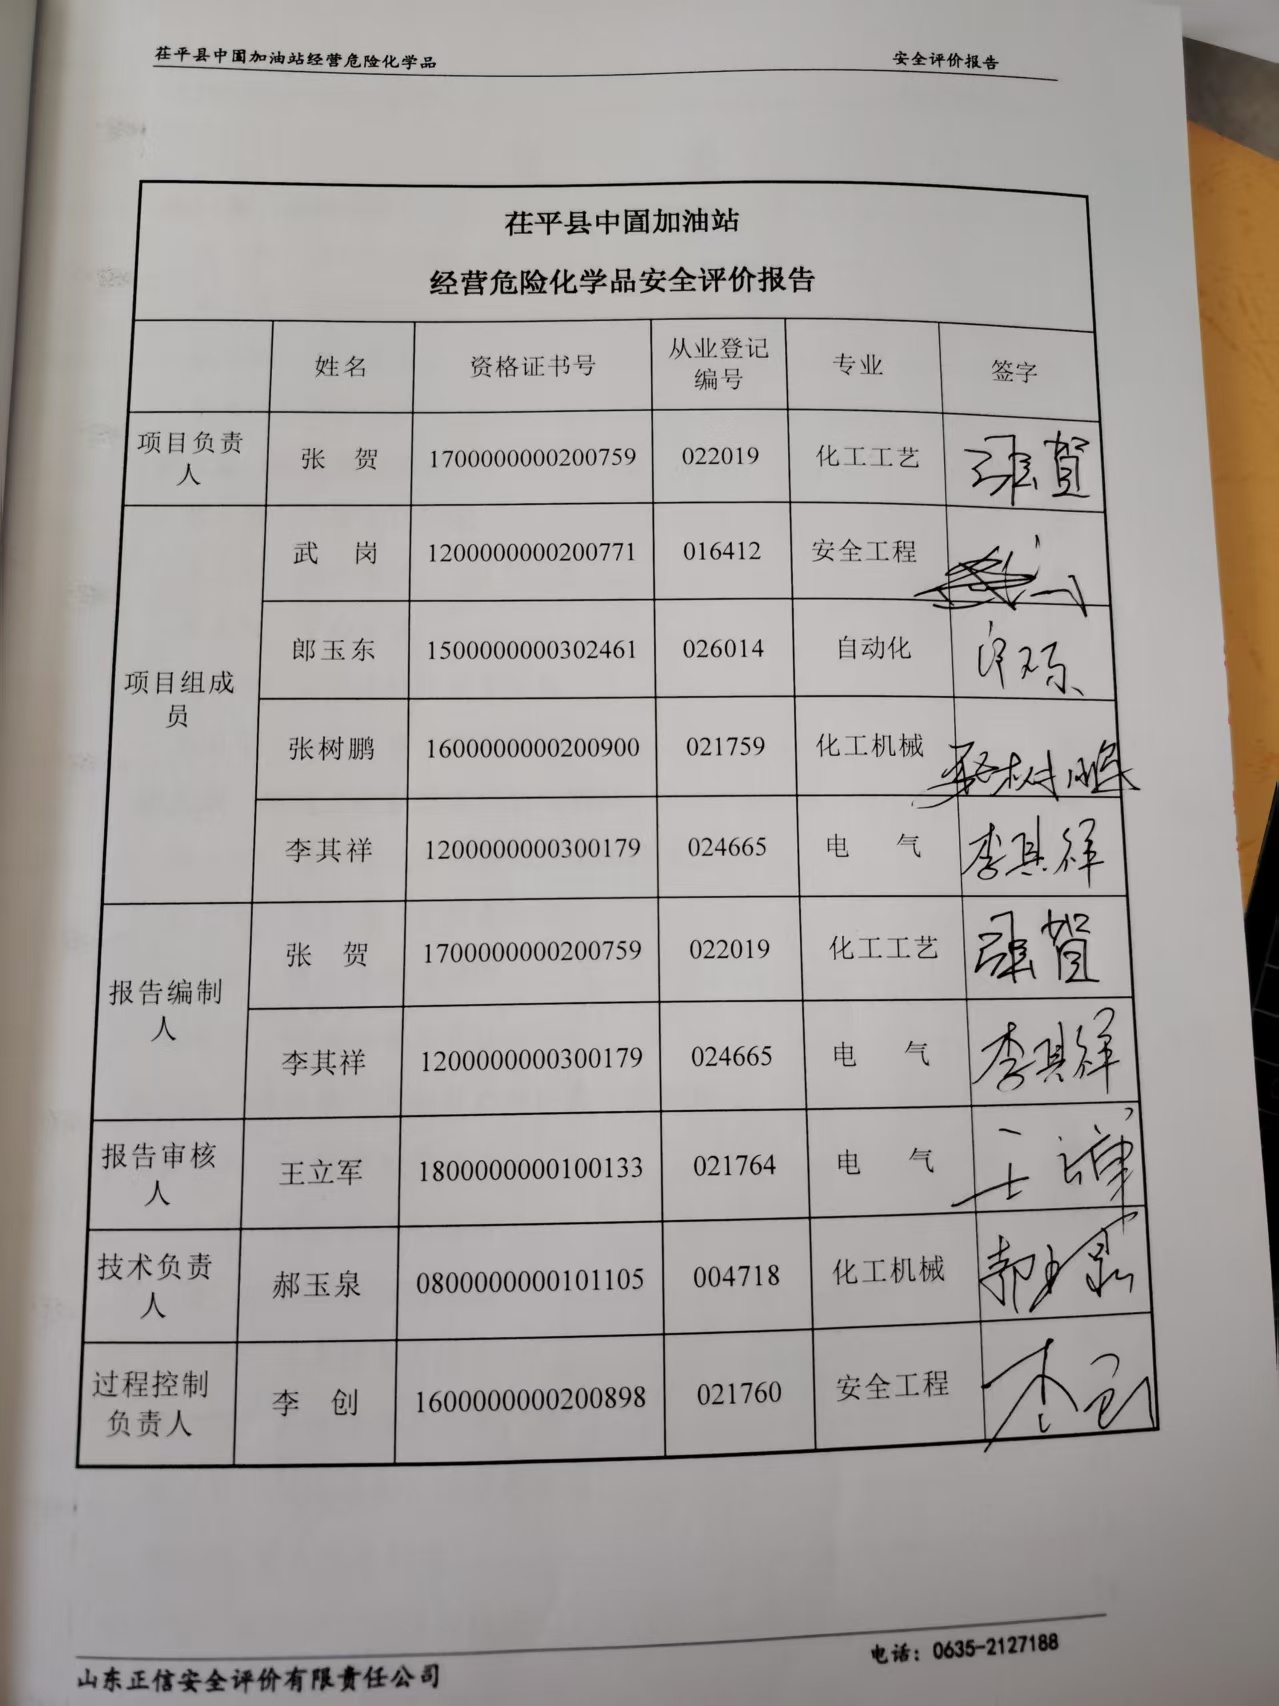 茌平县中囿加油站经营危险化学品 安全评价报告
茌平县中囿加油站
经营危险化学品安全评价报告
姓名 资格证书号 从业登记编号 专业 签字
项目负责人 张 贺 1700000000200759 022019 化工工艺 张贺
项目组成员 武 岗 1200000000200771 016412 安全工程
郎玉东 1500000000302461 026014 自动化
张树鹏 1600000000200900 021759 化工机械 张树鹏
李其祥 1200000000300179 024665 电 气 李其祥
报告编制人 张 贺 1700000000200759 022019 化工工艺 张贺
李其祥 1200000000300179 024665 电 气 李其祥
报告审核人 王立军 1800000000100133 021764 电 气 王立军
技术负责人 郝玉泉 0800000000101105 004718 化工机械 郝玉泉
过程控制负责人 李 创 1600000000200898 021760 安全工程 李创
山东正信安全评价有限责任公司 电话：0635-2127188